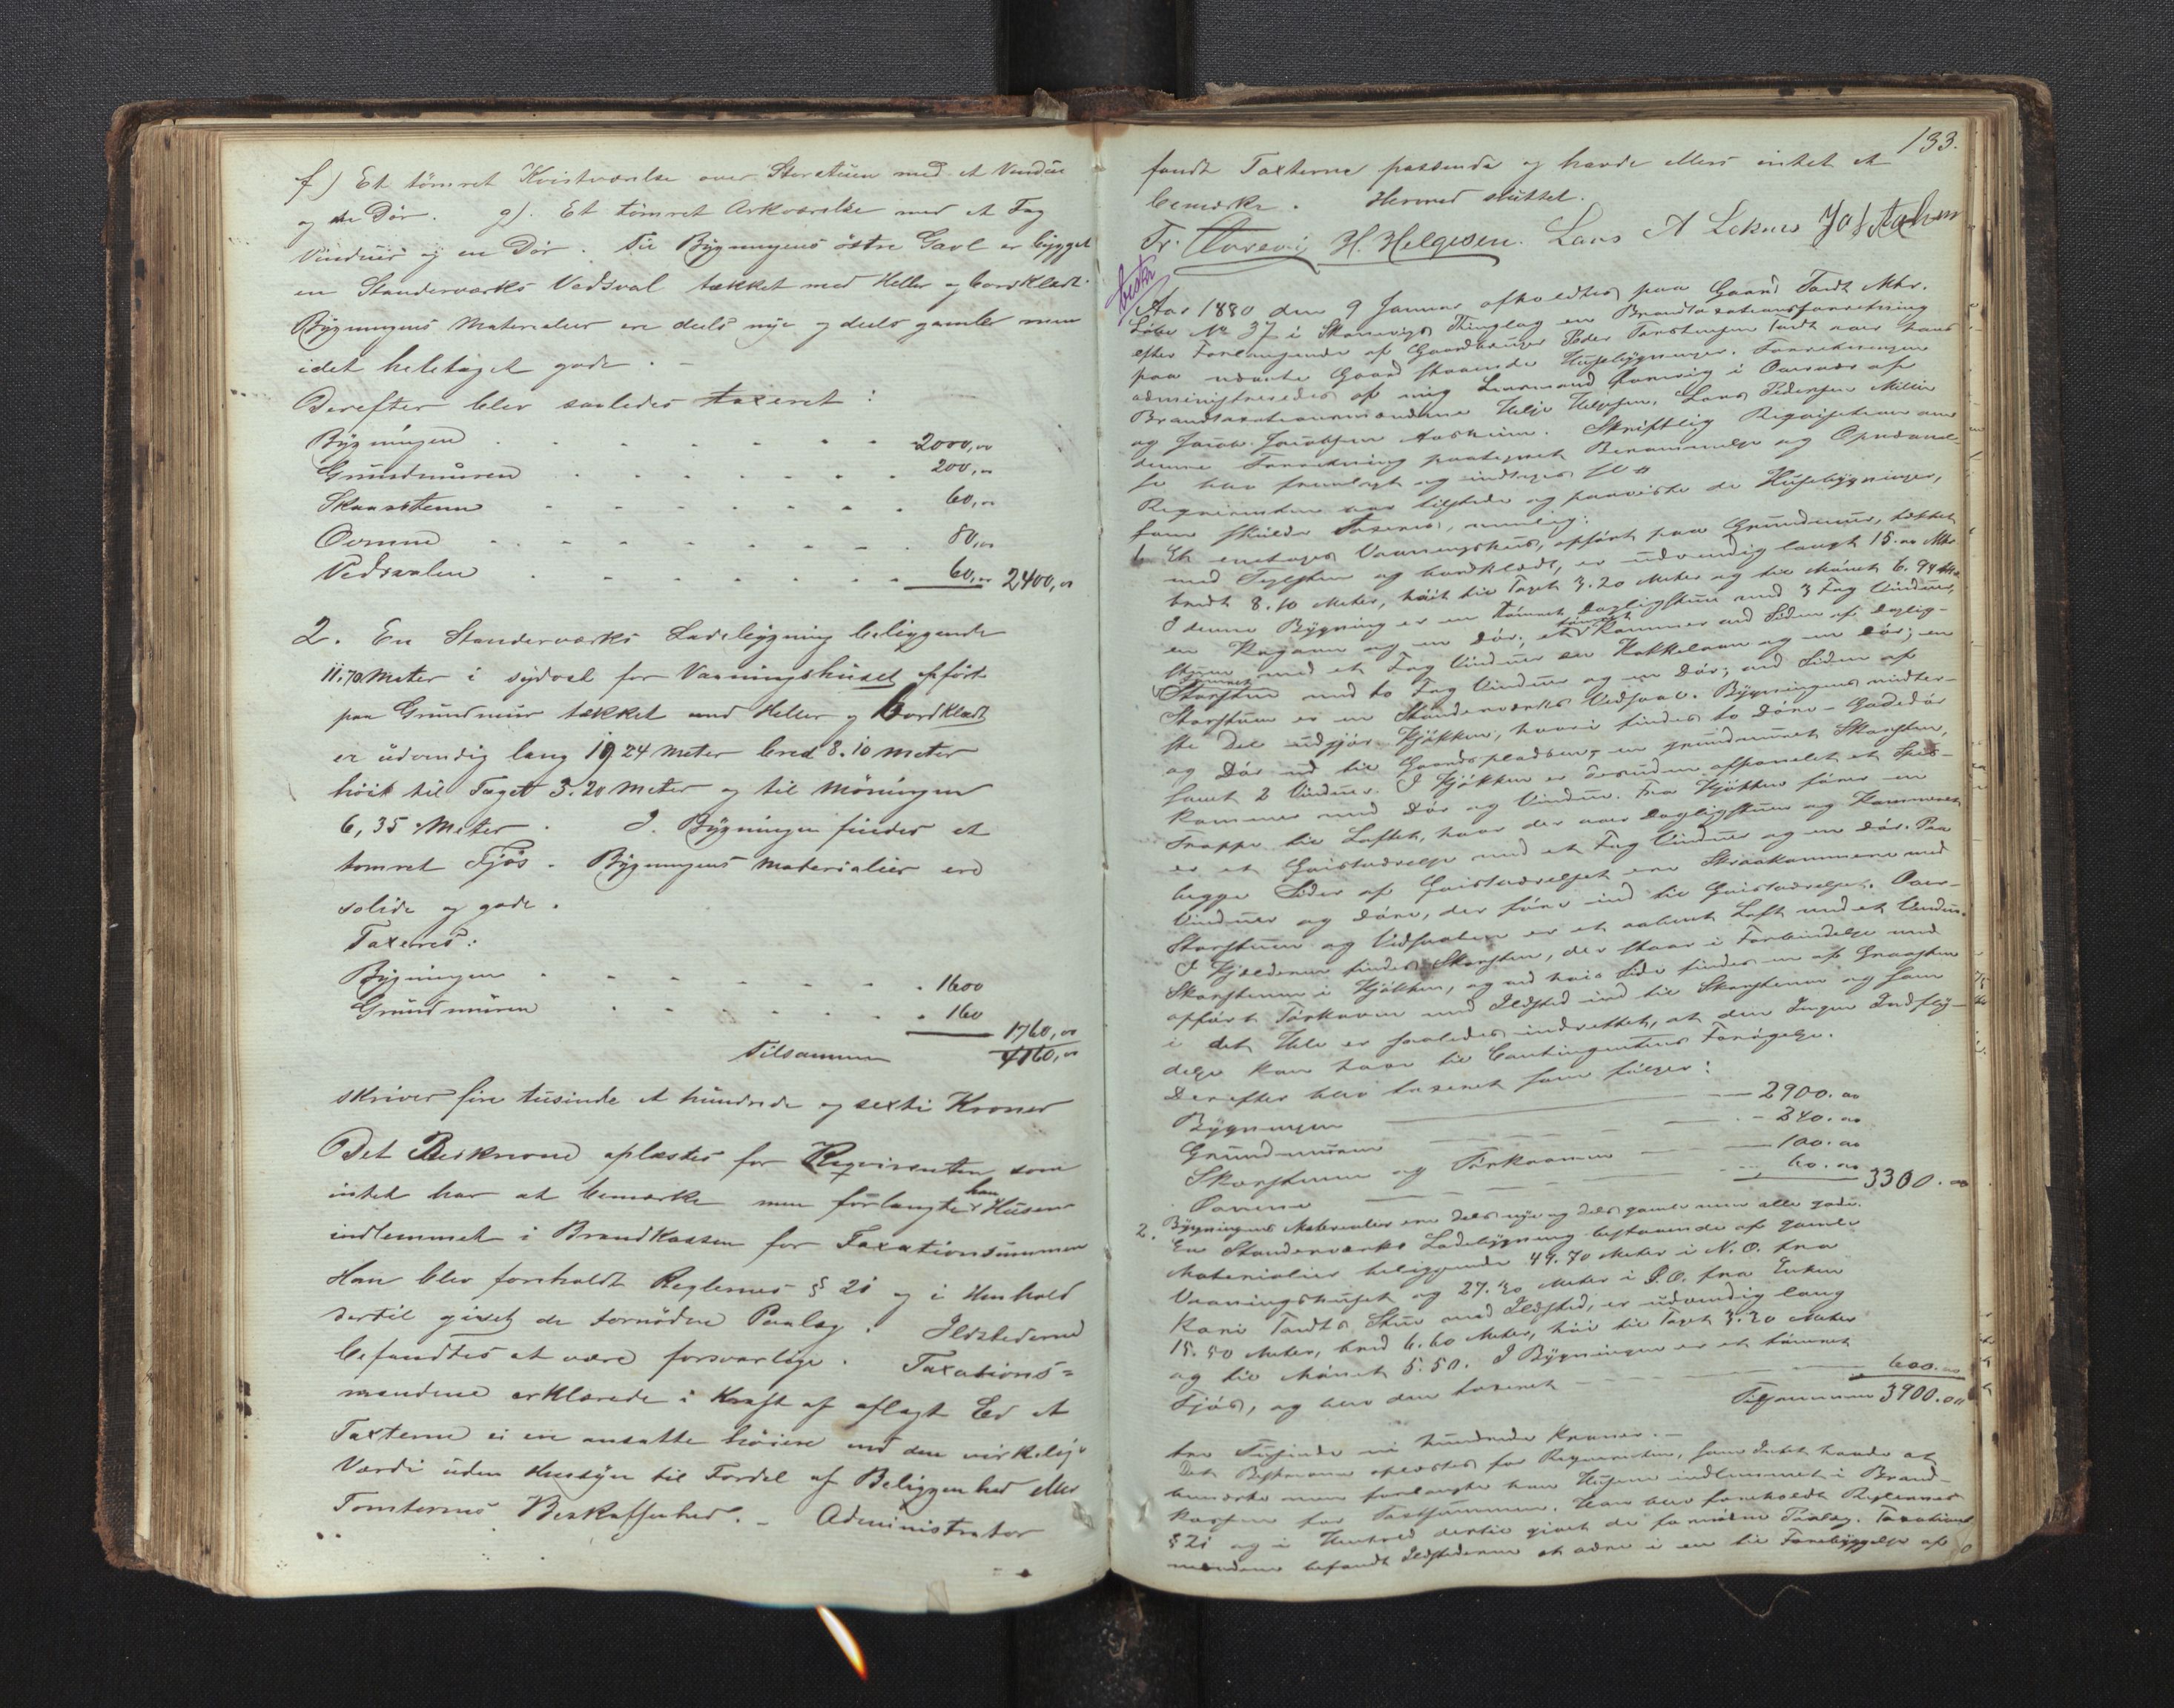 f) Et tömret Kvistværelse over Storstuen med et Vindue
og en Dör. g). Et tömret Arkværelse med et Fag
Vinduer og en Dör. Til Bygningens östre Gavl er bygget
en Standerværks Vedsval tækket med Heller og bordklædt.
Bygningens Materialier ere deels nye og deels gamle men
idet heletaget gode. -
Derefter blev saaledes taxeret:
Bygningen 2000,00
Grundmuren 200,00
Skorstenen 60,00
Ovnene 80,00
Vedsvalen 60,00 2400,00
2. En Standerværks Ladebygning beliggende
11,70 Meter i sydost for Vaaningshuset opfört
paa Grundmur tækket med Heller og bordklædt
er udvendig lang 19 24 Meter bred 8.10 Meter
höit til Taget 3.20 Meter og til Möningen
6,35 Meter. I Bygningen findes et
tömret Fjös. Bygningens Materialier ere
solide og gode.
Taxeres:
Bygningen 1600
Grundmuren 160
1760,00
Tilsammen 4160,00
skriver fire tusinde et hundrede og sexti Kroner
Det Beskrevne oplæstes for Reqvirenten som
intet har at bemærke men forlangte han Husene
indlemmet i Brandkassen for Taxationsummen
Han blev foreholdt Reglernes § 21 og i Henhold
dertil givet de fornödne Paalæg. Ildstederne
befandtes at være forsvarlige. Taxations=
mændene erklærede i Kraft af aflagt Ed at
Taxterne ei ere ansatte höiere end den virkelige
Værdi uden Hensyn til Fordel af Beliggenhed eller
Tomternes Beskaffenhed. - Administrator
133.
fandt Taxterne passende og havde ellers intet at
bemærke. Hermed sluttet.
Tr. H. Helgesen. Lars A Leknes
Aar 1880 den 9 Januar afholdtes paa Gaard Tandt Mtr.
Löbe No 37 i Skonevigs Thinglag en Brandtaxationsforretning
efter Forlangende af Gaardbruger Peder Torstensen Tandt over hans
paa nævnte Gaard staaende Husebygninger. Forretningen
administreredes af mig Lensmand i af
Brandtaxationsmændene Helje Heljesen, Lars Pedersen Milde
og Jacob Jacobsen Aasheim. Skriftlig Reqvisition om
denne Forretning paategnet Berammelse og Opnævnel-
se blev fremlagt og indtages
Reqvirenten var tilstede og paaviste de Husebygninger,
som skulde taxeres, nemlig:
1. Et enetages Vaaningshus, opfört paa Grundmur, tækket
med Teglsten og bordklædt, er udvendig langt 15.00 Mtr
bredt 8.10 Meter, höit til Taget 3.20 Meter og til Mönet 6.94 Mtr
I denne Bygning er en tömret Dagligstue med 3 Fag Vinduer,
en Kogovn og en Dör; et tömret Kammer ved Siden af Daglig-
stuen med et Fag Vinduer en Kakkelovn og en Dör; en
tömret Storstue med to Fag Vinduer og en Dör; ved Siden af
Storstuen er en Standerværks Vedsval. Bygningens midter-
ste Del udgjör Kjökken, hvori findes to Döre - Gadedör
og Dör ud til Gaardspladsen, en grundmuret Skorsten,
samt 2 Vinduer. I Kjökken er desuden afpanelet et Spis-
kammer med Dör og Vindue. Fra Kjökken förer en
Trappe til Loftet, hvor der over Dagligstuen og Kammeret
er et Qvistværelse med et Fag Vinduer og en Dör. Paa
begge Sider af Qvistværelset ere Skraakammere med
Vinduer og Döre, der före ind til Qvistværelset. Over
Storstuen og Vedsvalen er et aabent Loft med et Vindue.
I Kjelderen findes Skorsten, der staar i Forbindelse med
Skorstenen i Kjökken, og ved hvis Side findes en af Graasten
opfört Törkeovn med Ildsted ind til Skorstenen og som
i det Hele er saaledes indrettet, at den Ingen Indfly-
delse kan have til Contingentens Forögelse.
Derefter blev taxeret som fölger:
Bygningen 2900.00
Grundmuren 240.00
Skorstenen og Törkeovnen 100.00
Ovnene 60.00 3300.00
Bygningens Materialier ere dels nye og dels gamle men alle gode.
2. En Standerværks Ladebygning bestaaende af gamle
Materialier beliggende 44.70 Meter i N.O. fra
Vaaningshuset og 27.20 Meter i S.O. fra Enken
Kari Tandts Stue med Ildsted, er udvendig lang
15.50 Meter, bred 6.60 Meter, höi til Taget 3.20 Meter
og til Mönet 5.50. I Bygningen er et tömret
Fjös, og blev den taxeret 600.00
Tilsammen 3900.00
tre Tusinde ni hundrede Kroner. -
Det Beskrevne oplæstes for Reqvirenten, som Intet havde at
bemærke men forlangte han Husene indlemmet i Brand-
kassen for Taxtsummen. Han blev foreholdt Reglernes
§ 21 og i Henhold dertil givet de fornödne Paalæg. Taxations
mændene befandt Ildstederne at være i en til Forebyggelse af